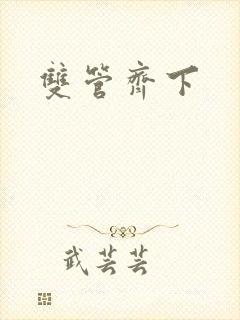 雙管齊下
武芸芸